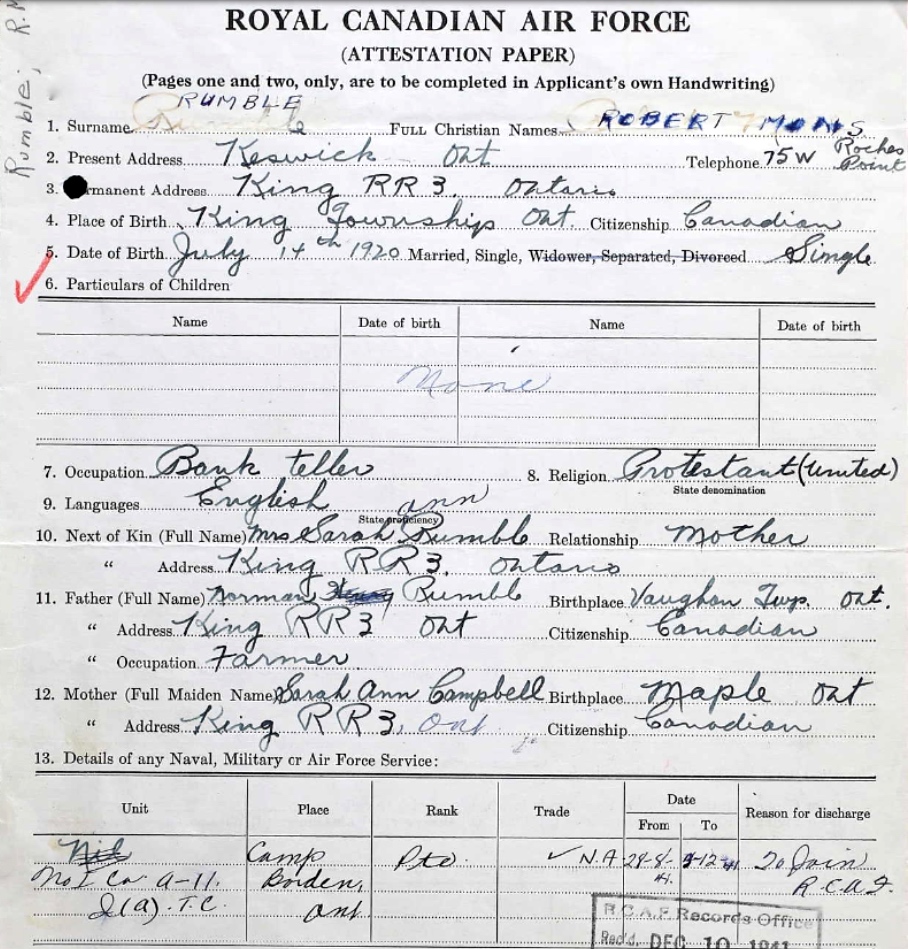 Rumble, R.
ROYAL CANADIAN AIR FORCE
(ATTESTATION PAPER)
(Pages one and two, only, are to be completed in Applicant's own Handwriting)
RUMBLE
1. Surname FULL Christian Names ROBERT
2. Present Address Keswick Ont Telephone 75W Roches Point
3. rmanent Address King RR 3. Ontario
4. Place of Birth King Township Ont. Citizenship Canadian
5. Date of Birth July 14th 1920 Married, Single, Widower, Separated, Divorced Single
6. Particulars of Children
Name Date of birth Name Date of birth
None
7. Occupation Bank teller 8. Religion Protestant (United)
State denomination
9. Languages English
State proficiency
ann
10. Next of Kin (Full Name) Mrs Sarah Rumble Relationship Mother
" Address King RR 3. Ontario
11. Father (Full Name) Norman Rumble Birthplace Vaughan Twp. Ont.
" Address King RR 3 Ont Citizenship Canadian
" Occupation Farmer
12. Mother (Full Maiden Name) Sarah Ann Campbell Birthplace Maple Ont
" Address King RR 3, Ont Citizenship Canadian
13. Details of any Naval, Military or Air Force Service:
Unit Place Rank Trade Date Reason for discharge
From To
Nil Camp Pte. N.A 28-8- -12-41 To Join
41.
A-11. Borden, R.C.A.F.
T.C. Ont.
R.C.A.F. Records Office
Rec'd. DEC 10 1941